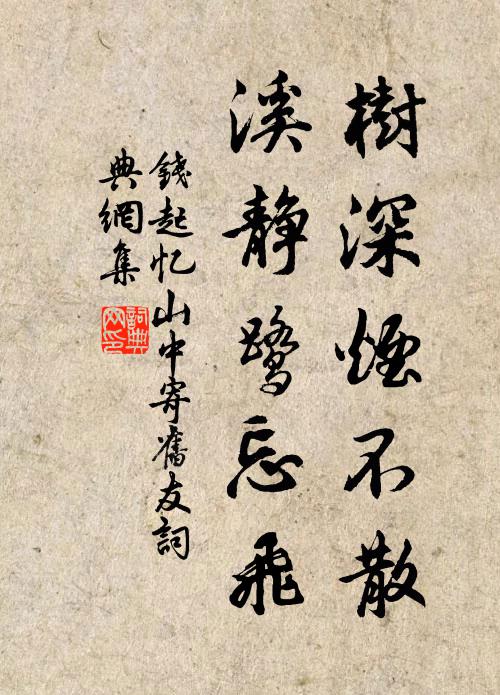 樹深煙不散
溪静鹭忘飛
錢起忆山中寄舊友詞
典網集
詞典网印